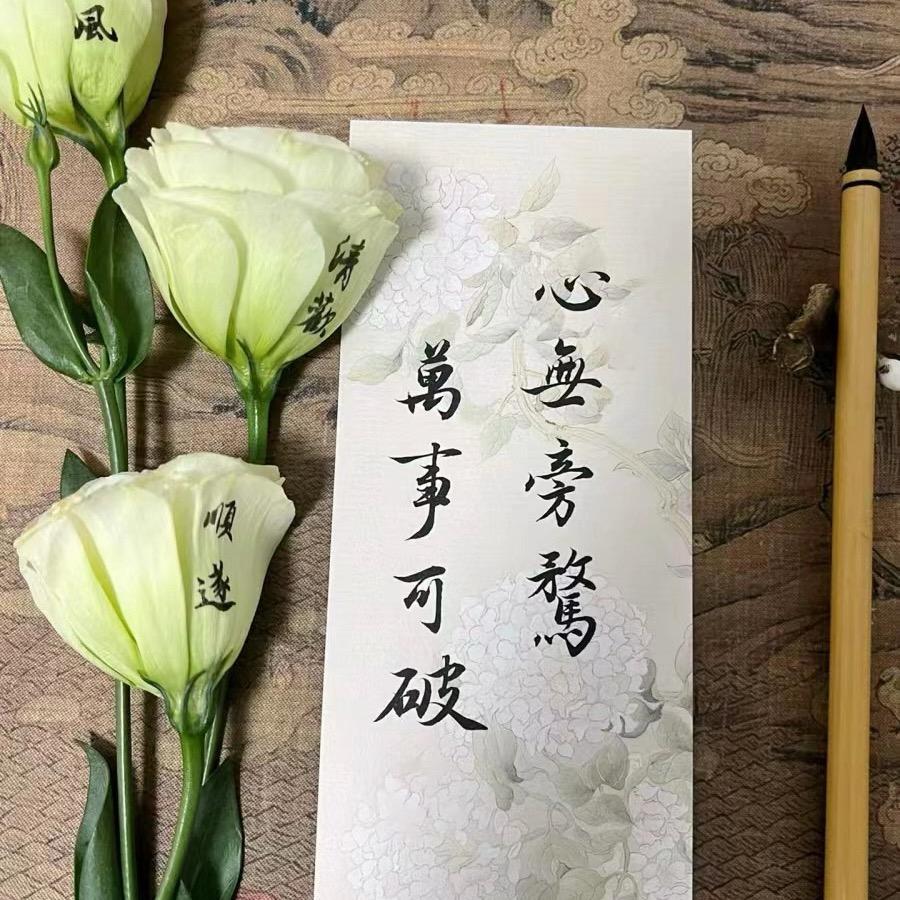 心無旁騖
萬事可破
風
清歡
順遂